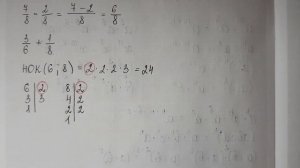 7/8 - 2/8 = 7-2/8 = 6/8
1/6 + 1/8
НОК(6;8) = 2·2·2·3 = 24
6|2 8|2
3|3 4|2
1| 2|2
1|